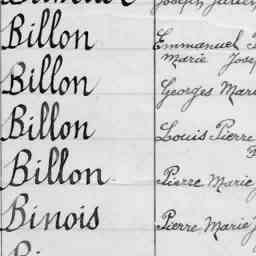 Billon Emmanuel
Marie
Billon Georges
Billon Louis Pierre
Billon Pierre Marie
Binois Pierre Marie